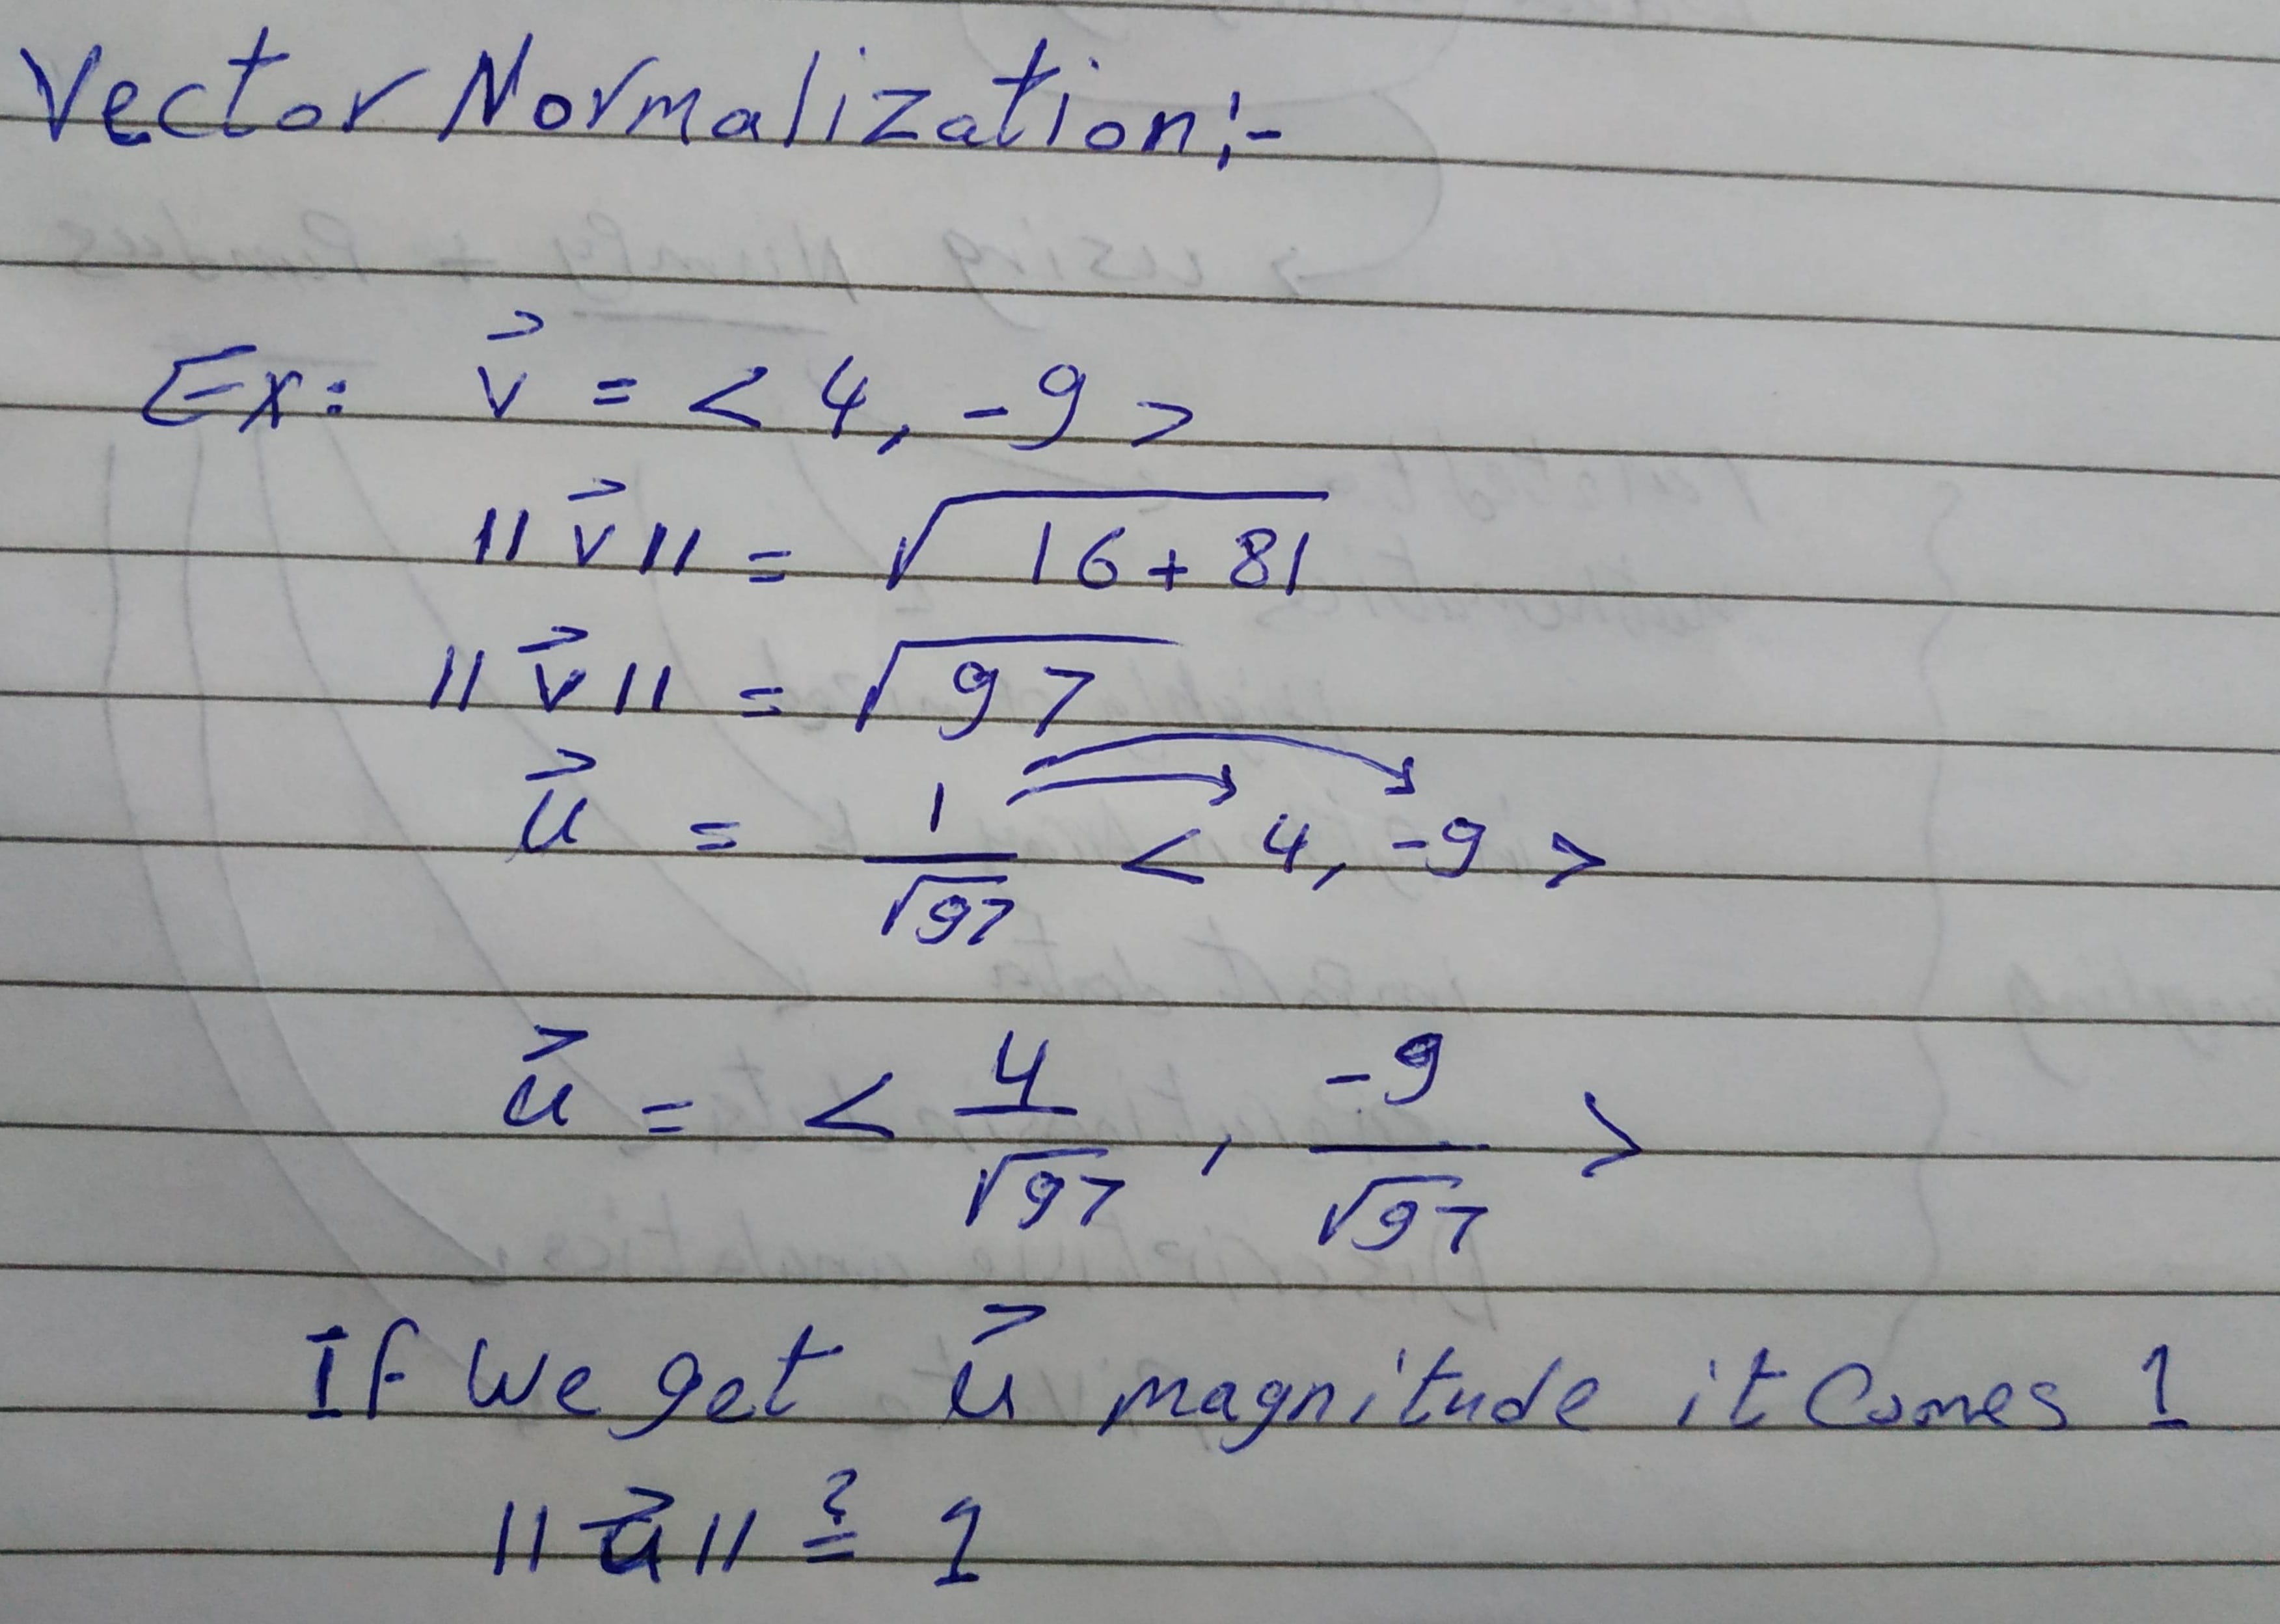 Vector Normalization:-
Ex: v⃗ = < 4, -9 >
||v⃗|| = √(16 + 81)
||v⃗|| = √97
u⃗ = 1/√97 < 4, -9 >
u⃗ = < 4/√97 , -9/√97 >
If we get u⃗ magnitude it comes 1
||u⃗|| ≟ 1